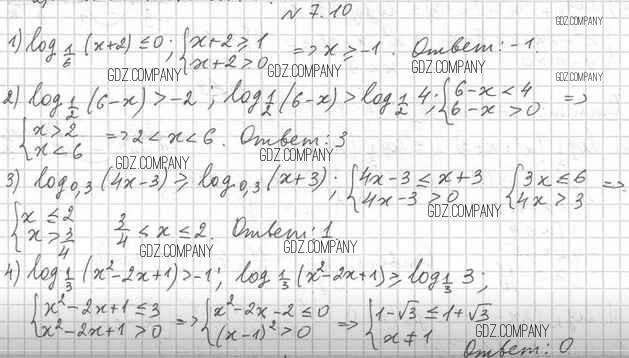 № 7.10
GDZ.COMPANY
1) log_{1/6} (x+2) ≤ 0; { x+2 ≥ 1 x+2 > 0 => x ≥ -1. Ответ: -1.
GDZ.COMPANY GDZ.COMPANY GDZ.COMPANY
2) log_{1/2} (6-x) > -2; log_{1/2} (6-x) > log_{1/2} 4; { 6-x < 4 6-x > 0 =>
GDZ.COMPANY GDZ.COMPANY
{ x > 2 x < 6 => 2 < x < 6. Ответ: 3
GDZ.COMPANY GDZ.COMPANY
3) log_{0,3} (4x-3) ≥ log_{0,3} (x+3); { 4x-3 ≤ x+3 4x-3 > 0 { 3x ≤ 6 4x > 3 =>
GDZ.COMPANY
{ x ≤ 2 x > 3/4 3/4 < x ≤ 2. Ответ: 1
GDZ.COMPANY GDZ.COMPANY
4) log_{1/3} (x²-2x+1) > -1; log_{1/3} (x²-2x+1) ≥ log_{1/3} 3;
{ x²-2x+1 ≤ 3 x²-2x+1 > 0 => { x²-2x-2 ≤ 0 (x-1)² > 0 => { 1-√3 ≤ 1+√3 x ≠ 1
GDZ.COMPANY
Ответ: 0